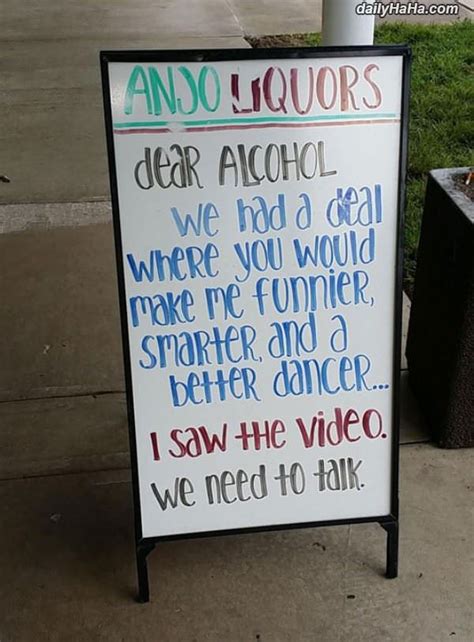 dailyHaHa.com
ANJO LIQUORS
dear ALCOHOL
we had a deal
where you would
make me funnier,
smarter, and a
better dancer...
I saw the video.
we need to talk.